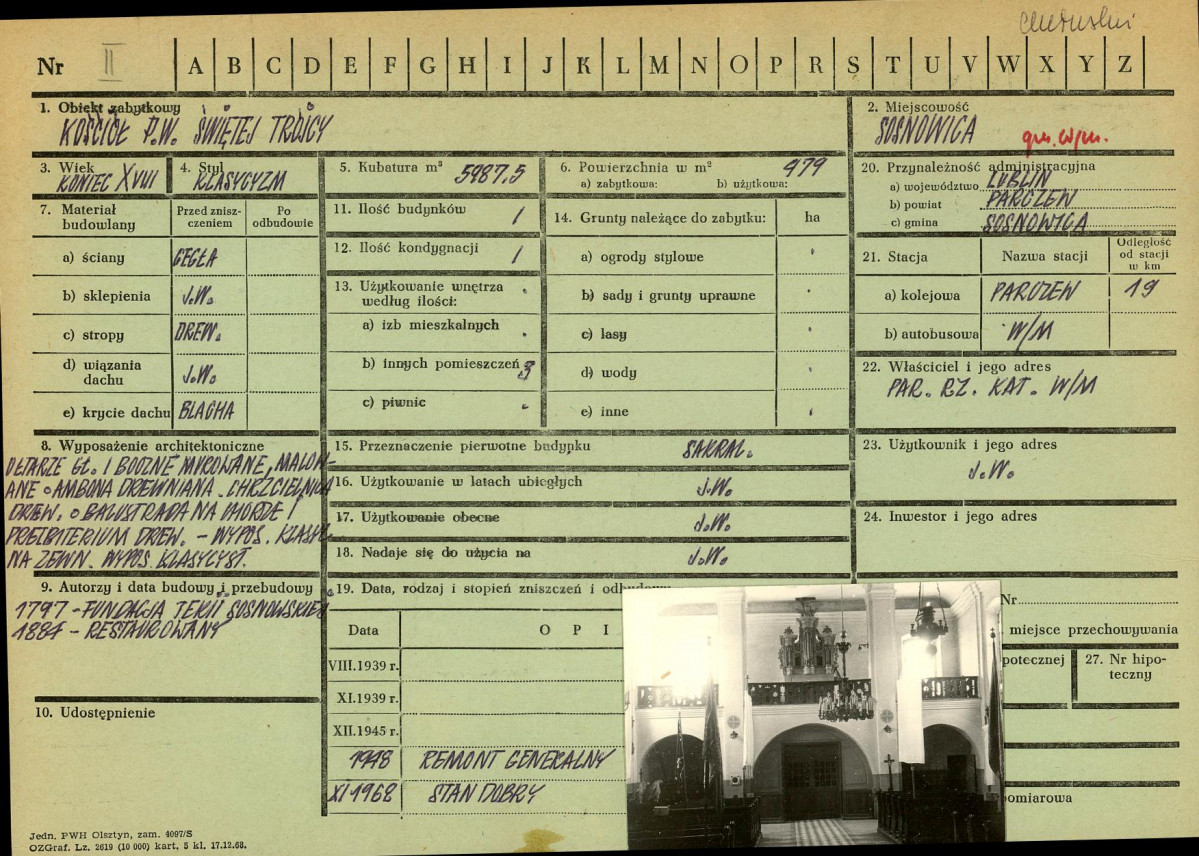 Nr II A B C D E F G H I J K L M N O P R S T U V W X Y Z
1. Obiekt zabytkowy
KOŚCIÓŁ P.W. ŚWIĘTEJ TRÓJCY
2. Miejscowość
SOSNOWICA
gm. w/m.
3. Wiek
KONIEC XVIII
4. Styl
KLASYCYZM
5. Kubatura m³ 5987.5
6. Powierzchnia w m² 979
a) zabytkowa: b) użytkowa:
20. Przynależność administracyjna
a) województwo LUBLIN
b) powiat PARCZEW
c) gmina SOSNOWICA
7. Materiał budowlany
Przed znisz-
czeniem
Po
odbudowie
a) ściany CEGŁA
b) sklepienia J.W.
c) stropy DREW.
d) wiązania
dachu J.W.
e) krycie dachu BLACHA
11. Ilość budynków 1
12. Ilość kondygnacji 1
13. Użytkowanie wnętrza
według ilości:
a) izb mieszkalnych
b) innych pomieszczeń 3
c) piwnic
14. Grunty należące do zabytku: ha
a) ogrody stylowe
b) sady i grunty uprawne
c) lasy
d) wody
e) inne
21. Stacja Nazwa stacji Odległość
od stacji
w km
a) kolejowa PARCZEW 19
b) autobusowa W/M
22. Właściciel i jego adres
PAR. RZ. KAT. W/M
8. Wyposażenie architektoniczne
OŁTARZE GŁ. I BOCZNE MUROWANE, MALOW-
ANE. AMBONA DREWNIANA. CHRZCIELNICA
DREW. BALUSTRADA NA CHÓRZE I
PREZBITERIUM DREW. - WYPOS. KLASYC.
NA ZEWN. WYPOS. KLASYCYST.
15. Przeznaczenie pierwotne budynku SAKRAL.
16. Użytkowanie w latach ubiegłych J.W.
17. Użytkowanie obecne J.W.
18. Nadaje się do użycia na J.W.
23. Użytkownik i jego adres
J.W.
24. Inwestor i jego adres
9. Autorzy i data budowy i przebudowy
1797 - FUNDACJA TEKLI SOSNOWSKIEJ
1884 - RESTAUROWANY
10. Udostępnienie
19. Data, rodzaj i stopień zniszczeń i odbudowy
Data O P I
VIII.1939 r.
XI.1939 r.
XII.1945 r.
1948 REMONT GENERALNY
XI 1968 STAN DOBRY
Nr
miejsce przechowywania
potecznej
27. Nr hipo-
teczny
omiarowa
Jedn. PWH Olsztyn, zam. 4097/S
OZGraf. Lz. 2619 (10 000) kart. 5 kl. 17.12.68.